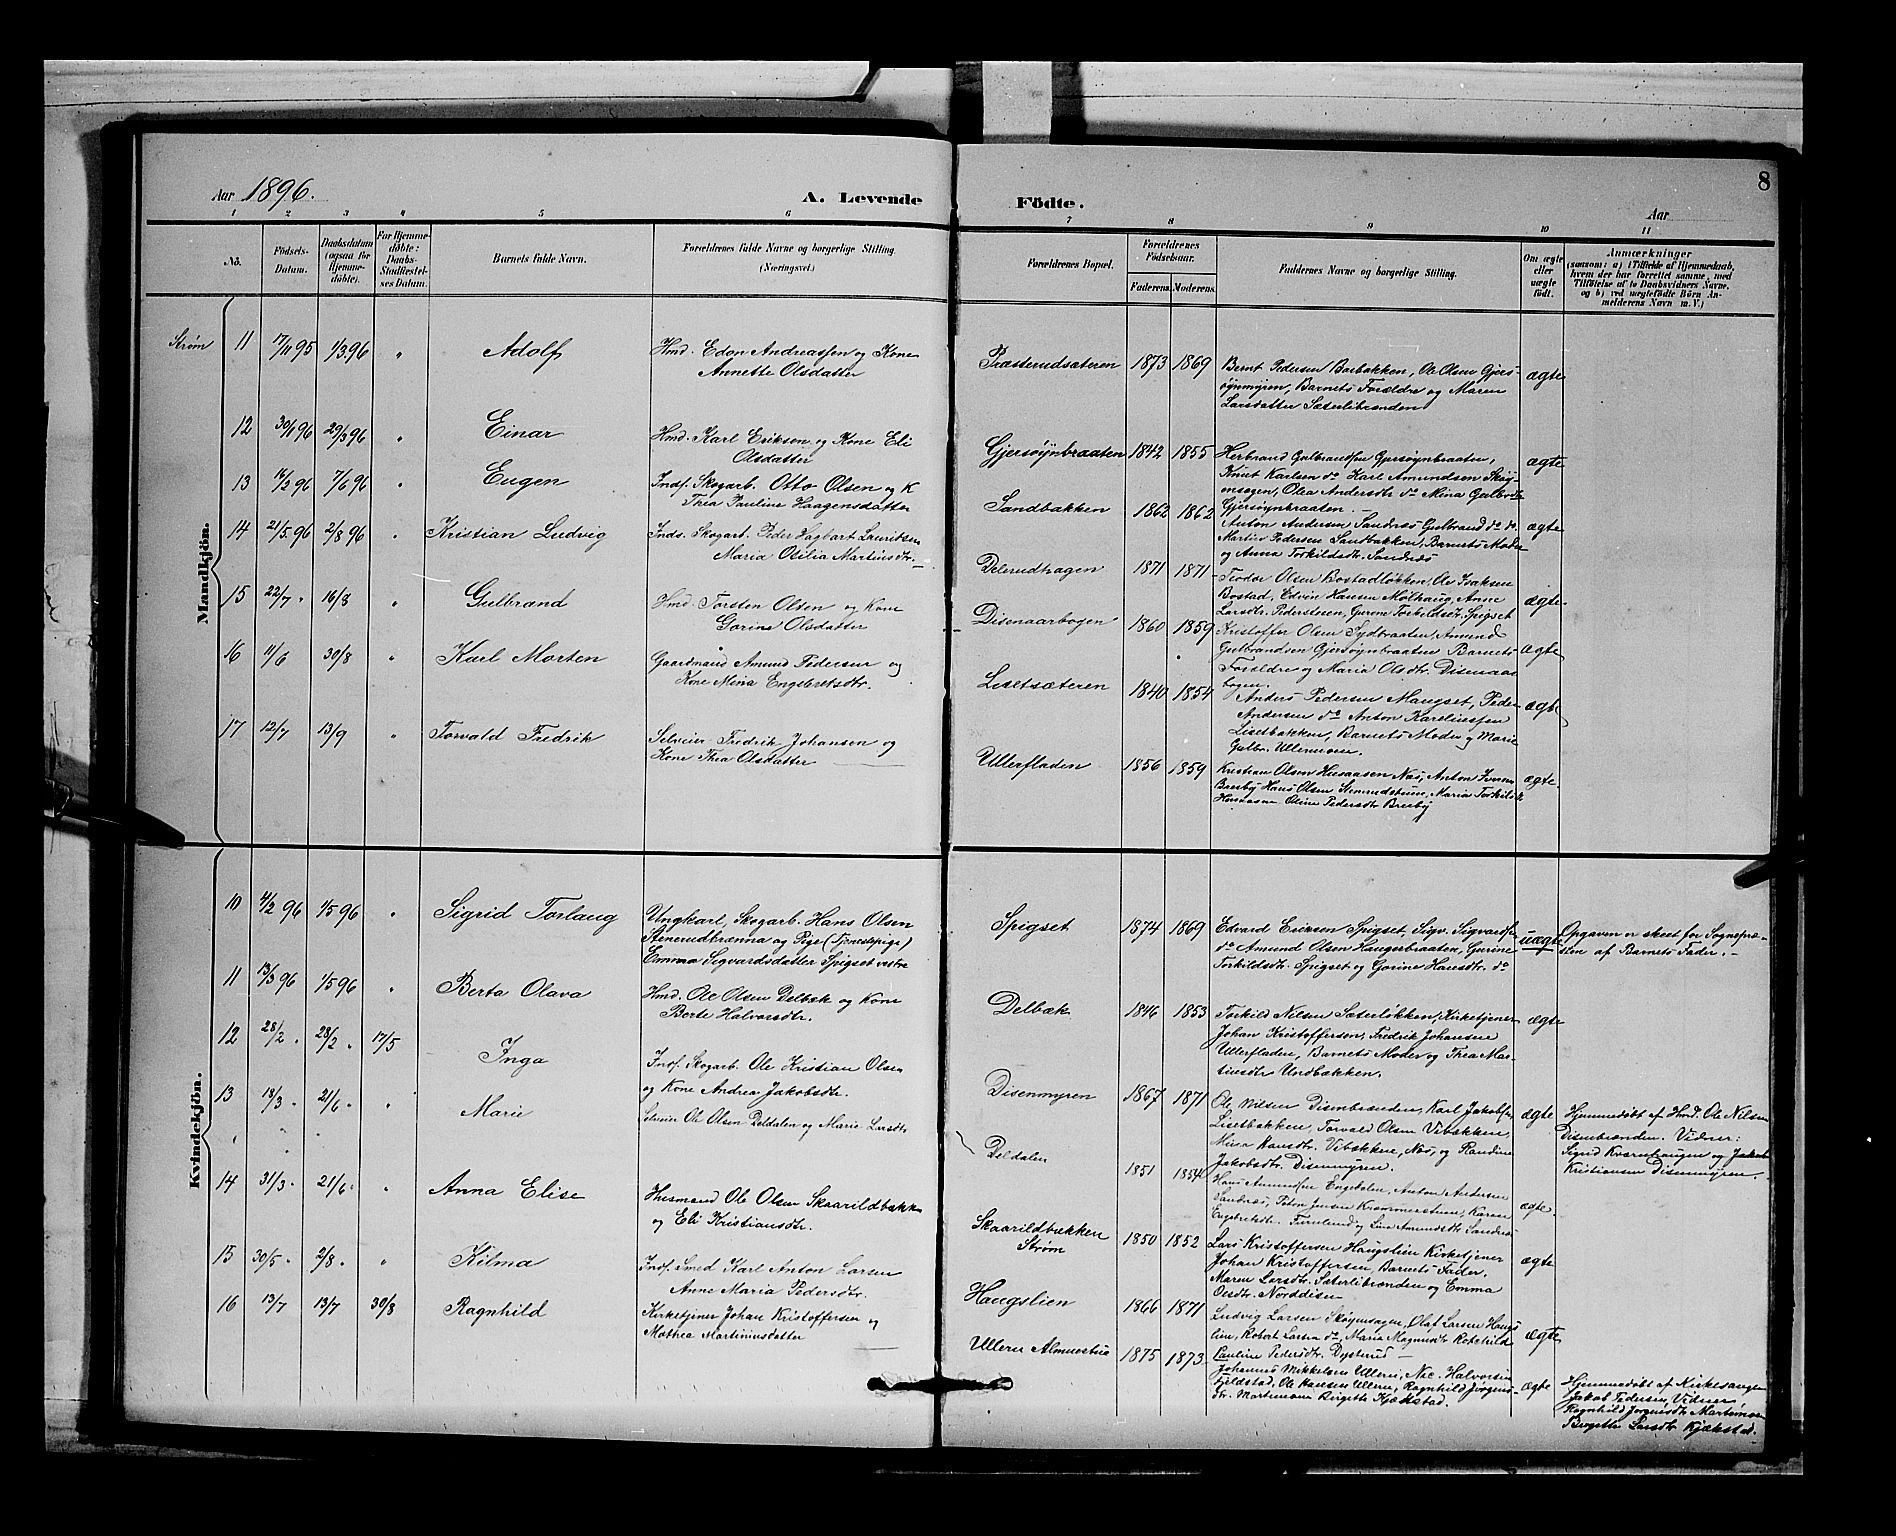 Aar 1896.
A. Levende
1 2 3 4 5 6
Nó.
Födsels-
Datum.
Daabsdatum
(ogsaa for
Hjemme-
döbte).
For Hjemme-
döbte:
Daabs-
Stadfæstel-
ses Datum.
Barnets fulde Navn.
Forældrenes fulde Navne og borgerlige Stilling.
(Næringsvei.)
Mandkjön.
Strøm 11 17/11 95 1/3 96 " Adolf Hmd. Edon Andreassen og Kone
Annette Olsdatter
12 30/1 96 29/3 96 " Einar Hmd. Karl Eriksen og Kone Eli
Olsdatter
13 16/2 96 7/6 96 " Eugen Inds. Skogarb. Otto Olsen og K
Thea Pauline Haagensdatter
14 21/5 96 2/8 96 " Kristian Ludvig Inds. Skogarb. Peder Hagbart Lauridsen
Maria Otilia Martinsdtr. —
15 22/7 " 16/8 " Gulbrand Hmd. Torsten Olsen og Kone
Gorine Olsdatter
16 11/6 30/8 " Karl Morten Gaardmand Amund Pedersen og
Kone Mina Engebretsdtr.
17 12/7 13/9 " Torvald Fredrik Selveier Fredrik Johansen og
Kone Thea Olsdatter
Kvindekjön.
10 4/2 96 1/5 96 " Sigrid Torlaug Ungkarl, Skogarb. Hans Olsen
Stenerudbrænna og Pige (Tjenestepige)
Emma Sigvardsdatter Spigset vestre
11 13/3 96 1/5 96 " Berta Olava Hmd. Ole Olsen Delbæk og Kone
Berte Halvorsdtr.
12 28/2 " 28/2 " 17/5 Inga Inds. Skogarb. Ole Kristian Olsen
og Kone Andrea Jakobsdtr.
13 18/3 " 21/6 " " Marie Selveier Ole Olsen Deldalen og Marie Larsdtr
14 31/3 " 21/6 " " Anna Elise Husmand Ole Olsen Skaarildbækken
og Eli Kristiansdtr.
15 30/5 " 2/8 " " Kilma Inds. Smed Karl Anton Larsen
Anne Maria Pedersdtr.
16 13/7 13/7 30/8 Ragnhild Kirketjener Johan Kristoffersen og
Mathea Martiniusdatter
Födte.
8
Aar
7 8 9 10 11
Forældrenes Bopæl.
Forældrenes
Födselsaar.
Faderens. Moderens.
Faddernes Navne og borgerlige Stilling.
Om ægte
eller
uægte
födt.
Anmærkninger
(saasom: a) i Tilfælde af Hjemmedaab,
hvem der har forrettet samme, med
Tilföielse af to Daabsvidners Navne.
og b) ved uægtefödte Börn An-
melderens Navn m. V.)
Præsterudsæteren 1873 1869 Bernt Pedersen Barbakken, Ole Olsen Gjers-
øynmyren, Barnets Forældre og Maren
Larsdatter Sæterlibrænden
ægte
Gjersøynbraaten 1842 1855 Herbrand Gulbrandsen Gjersøynbraaten,
Knut Karlsen do Karl Amundsen Skøy-
ensagen, Olea Andersdtr do Mina Gulbrdtr
Gjersøynbraaten. —
ægte
Sandbakken 1862 1862 Anton Andersen Sandnæs Gulbrand do do.
Martin Pedersen Sandbakken, Barnets Moder
og Anna Torkildsdtr. Sandnæs
ægte
Delerudhagen 1871 1871 Teodor Olsen Bostadløkken, Ole Isaksen
Bostad, Edvin Hansen Mølhaug, Anne
Larsdtr. Pedersteren, Gurine Torkildsdtr. Spigset
ægte
Disenaarbogen 1860 1859 Kristoffer Olsen Sydbraaten, Amund
Gulbrandsen Gjersøynbraaten Barnets
Forældre og Maria Olsdtr. Disenaar-
bogen
ægte
Lisetsæteren 1840 1854 Anders Pedersen Mangset, Peder
Andersen do Anton Kareliussen
Lisetbakken, Barnets Moder og Marie
Gulbr. Ullernmoen.
ægte
Ullerfladen 1856 1859 Kristian Olsen Husaasen Næs, Anton Iversen
Breeby Hans Olsen Stenrudstuen, Maria Torkildsdtr
Olsine Pedersdtr Breeby
ægte.
Spigset 1874 1869 Edvard Eriksen Spigset, Sigv. Sigvardsen
do Amund Olsen Haugerbraaten, Gurine
Torkildsdtr. Spigset og Gorine Hansdtr. do
uægte
Opgaven er skeet for Sognepræ-
sten af Barnets Fader. —
Delbæk 1846 1853 Torkild Nilsen Sæterløkken, Kirketjener
Johan Kristoffersen, Fredrik Johansen
Ullerfladen, Barnets Moder og Thea Mar-
tinsdtr Undbækken.
ægte
Disenmyren 1867 1871 Ole Nilsen Disenbrænden, Karl Jakobsen
Lisetbakken, Torvald Olsen Vibækken,
Mina Hansdtr. Vibækken, Næs, og Randine
Jakobsdtr. Disenmyren.
ægte
Hjemmedøbt af Hmd. Ole Nilsen
Disenbrænden. Vidner:
Sigrid Kværnhaugen og Jakob
Kristiansen Disenmyren.
Deldalen 1851 1854 Hans Amundsen Engebolen, Anton Andersen
Sandnæs, Peter Jensen Krommerstuen, Karen
Engebretsdtr. Furulund og Lina Amundsdtr. Sandnæs
ægte.
Skaarildbækken
Strøm
1850 1852 Lars Kristoffersen Haugslien Kirketjener
Johan Kristoffersen, Barnets Fader.
Maren Larsdtr. Sæterlibrænden og Emma
Olsdtr. Norddisen
ægte
Haugslien 1866 1871 Ludvig Larsen Skøyensagen, Olaf Larsen Haugs-
lien, Robert Larsen do, Maria Magnusdtr
Pauline Pedersdtr. Dysterud —
ægte
Ullern Almuestue 1875 1873 Johannes Mikkelsen Ullern, Nic. Halvorsen
Fjeldstad, Ole Hansen Ullern, Ragnhild Jørgens-
dtr. Martemoen Birgitte Kjækstad.
ægte
Hjemmedøbt af Kirkesanger
Jakob Pedersen, Vidner
Ragnhild Jørgensdtr Martemoen
Birgitte Larsdtr Kjækstad.